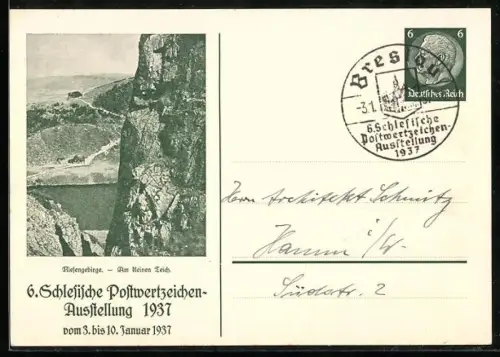 Riesengebirge. – Am kleinen Teich.
6. Schlesische Postwertzeichen-
Ausstellung 1937
vom 3. bis 10. Januar 1937
6 6
Deutsches Reich
Breslau
-3.1.
6. Schlesische
Postwertzeichen-
Ausstellung
1937
Herrn Architekt Schmitz
Hamm i/W.
Südstr. 2